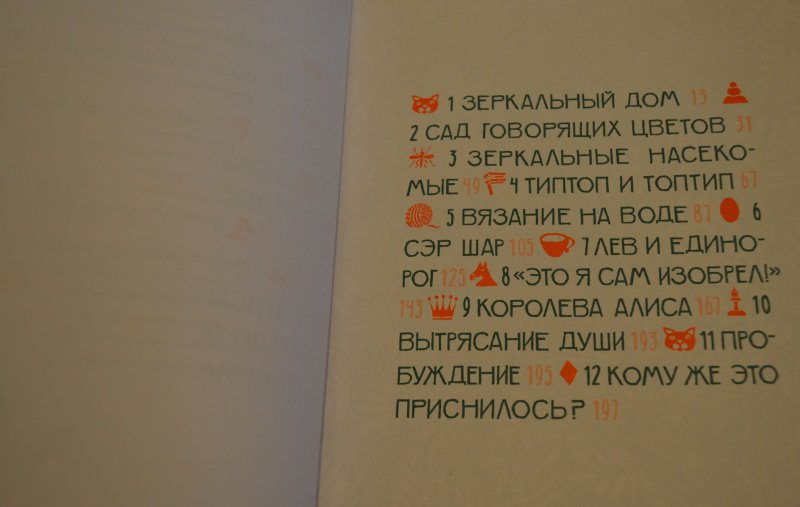 1 ЗЕРКАЛЬНЫЙ ДОМ 13
2 САД ГОВОРЯЩИХ ЦВЕТОВ 31
3 ЗЕРКАЛЬНЫЕ НАСЕКО-
МЫЕ 49 4 ТИПТОП И ТОПТИП 67
5 ВЯЗАНИЕ НА ВОДЕ 87 6
СЭР ШАР 105 7 ЛЕВ И ЕДИНО-
РОГ 125 8 «ЭТО Я САМ ИЗОБРЕЛ!»
143 9 КОРОЛЕВА АЛИСА 167 10
ВЫТРЯСАНИЕ ДУШИ 193 11 ПРО-
БУЖДЕНИЕ 195 12 КОМУ ЖЕ ЭТО
ПРИСНИЛОСЬ? 197